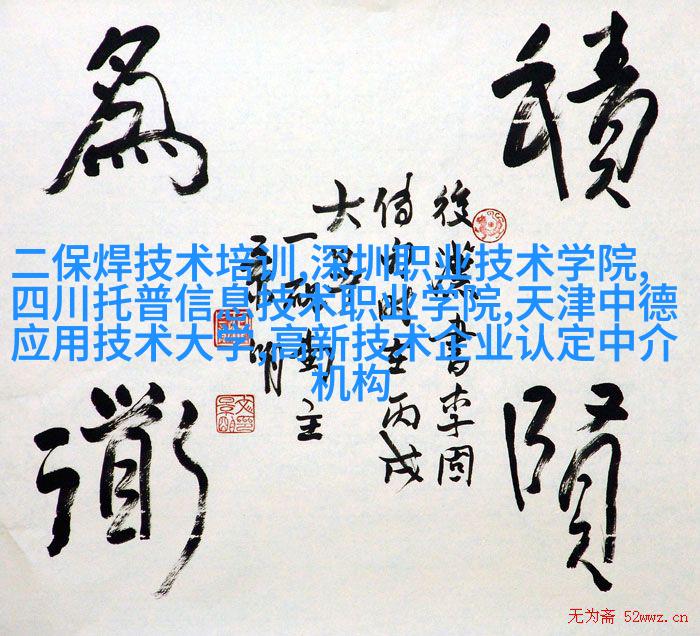 積賢
為衜
後漢書李固
傳句時在丙戌
大暑
二保焊技术培训,深圳职业技术学院,
四川托普信息技术职业学院,天津中德
应用技术大学,高新技术企业认定中介
机构
无为斋 52wwz.cn